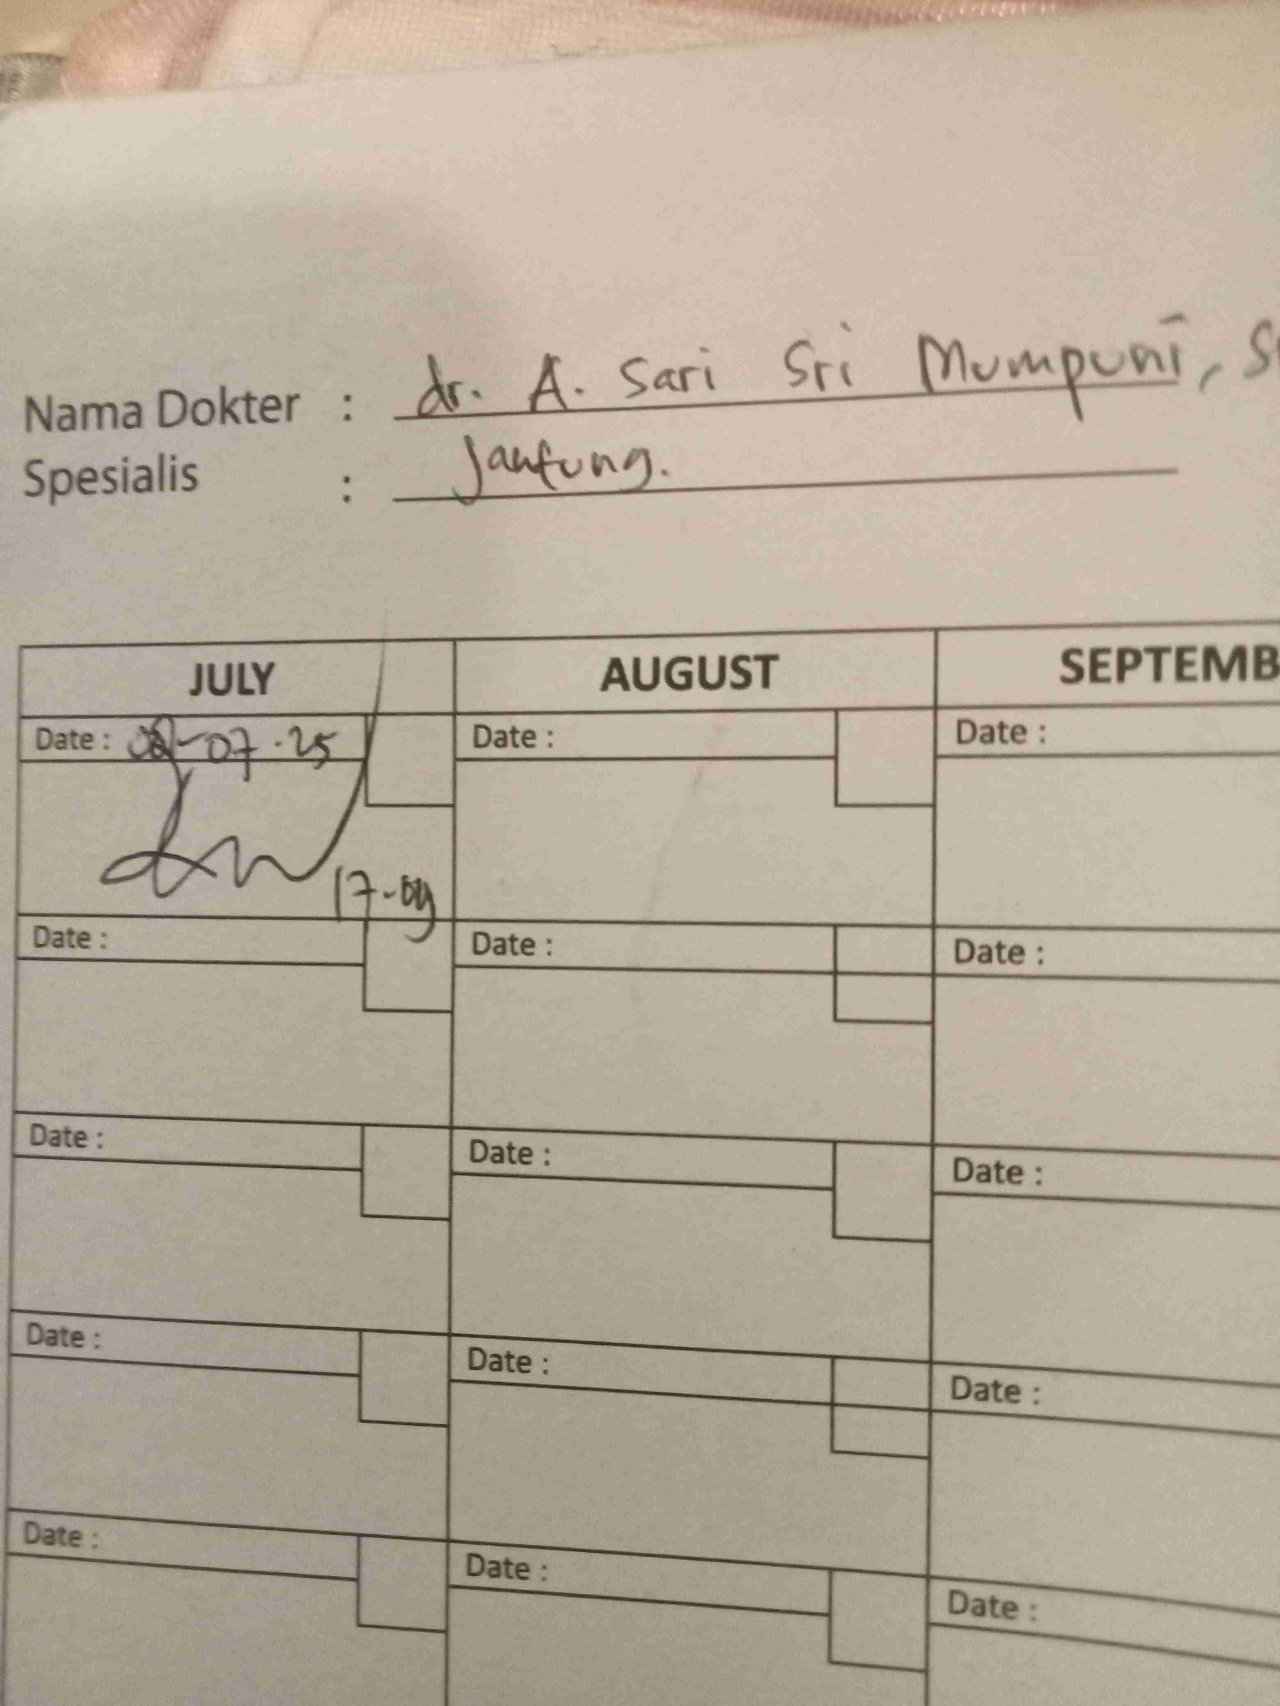 Nama Dokter : dr. A. Sari Sri Mumpuni, S
Spesialis : Jantung.
JULY AUGUST SEPTEMB
Date : 08-07-25 Date : Date :
17-09
Date : Date : Date :
Date : Date : Date :
Date : Date : Date :
Date : Date : Date :